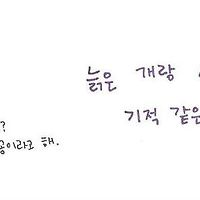 늙은 개랑
기적 같은
?
공이라고 해.